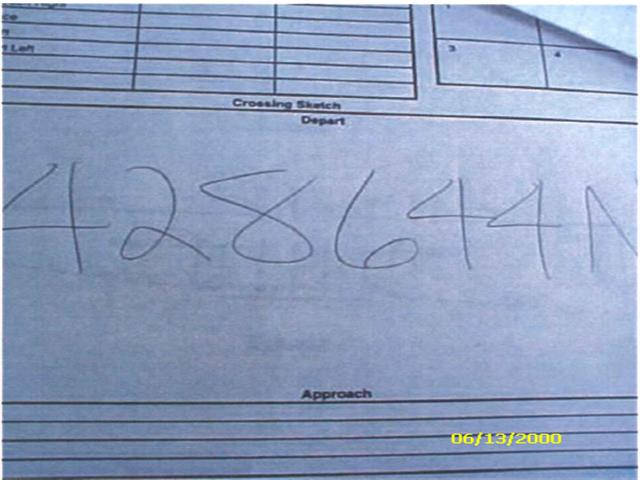 t Left
3
4
Crossing Sketch
Depart
428644N
Approach
06/13/2000